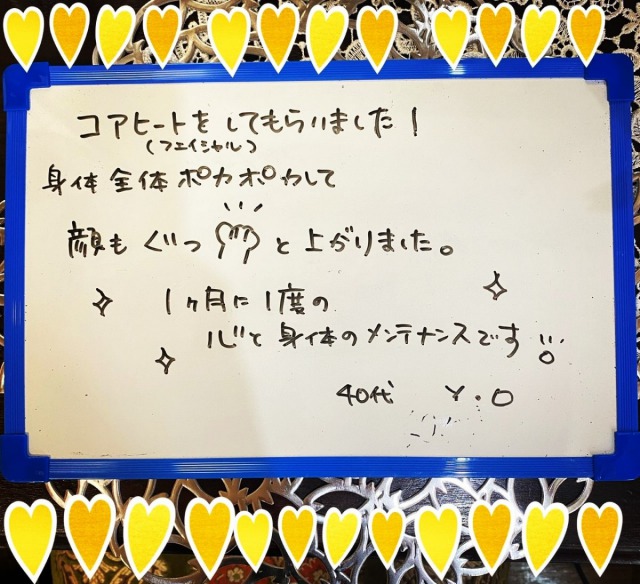 コアヒートをしてもらいました!
(フェイシャル)
身体全体ポカポカして
顔もぐっと上がりました。
1ヶ月に1度の
心と身体のメンテナンスです
40代 Y.O